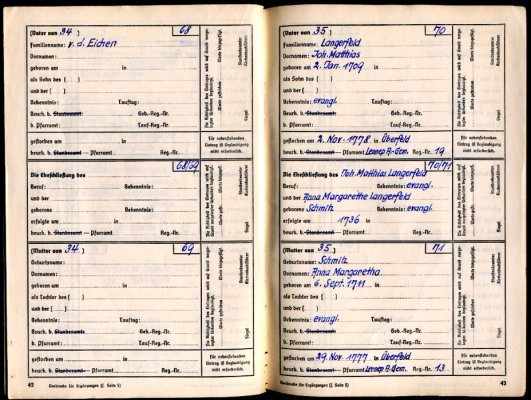 (Vater von 34 ) 68
Familienname: v. d. Eichen
Vornamen:
geboren am in
als Sohn des ( )
und der ( )
Bekenntnis: Tauftag:
Beurk. b. Standesamt: Geb.-Reg.-Nr.
b. Pfarramt: Tauf-Reg.-Nr.
gestorben am in
beurk. b. Standesamt – Pfarramt Reg.-Nr.
Für nebenstehenden
Eintrag ist Beglaubigung
nicht erforderlich.
68/69
Die Eheschließung des
Beruf: Bekenntnis:
und der
geborene Bekenntnis:
erfolgte am in
beurk. b. Standesamt – Pfarramt Reg.-Nr.
(Mutter von 34. ) 69
Geburtsname:
Vornamen:
geboren am in
als Tochter des ( )
und der ( )
Bekenntnis: Tauftag:
Beurk. b. Standesamt: Geb.-Reg.-Nr.
b. Pfarramt: Tauf-Reg.-Nr.
gestorben am in
beurk. b. Standesamt – Pfarramt Reg.-Nr.
Für nebenstehenden
Eintrag ist Beglaubigung
nicht erforderlich.
42 Vordrucke für Ergänzungen (f. Seite 5)
(Vater von 35 ) 70
Familienname: Langerfeld
Vornamen: Joh. Matthias
geboren am 2. Jan. 1709 in
als Sohn des ( )
und der ( )
Bekenntnis: evangl. Tauftag:
Beurk. b. Standesamt: Geb.-Reg.-Nr.
b. Pfarramt: Tauf-Reg.-Nr.
gestorben am 2. Nov. 1778 in Überfeld
beurk. b. Standesamt – Pfarramt Lennep R.-Gem. Reg.-Nr. 19
70/71
Die Eheschließung des Joh. Matthias Langerfeld
Beruf: Bekenntnis: evangl.
und der Anna Margarethe Langerfeld
geborene Schmitz Bekenntnis: evangl.
erfolgte am 1736 in
beurk. b. Standesamt – Pfarramt Reg.-Nr.
(Mutter von 35. ) 71
Geburtsname: Schmitz
Vornamen: Anna Margaretha
geboren am 6. Sept. 1711 in
als Tochter des ( )
und der ( )
Bekenntnis: evangl. Tauftag:
Beurk. b. Standesamt: Geb.-Reg.-Nr.
b. Pfarramt: Tauf-Reg.-Nr.
gestorben am 29. Nov. 1777 in Überfeld
beurk. b. Standesamt – Pfarramt Lennep R.-Gem. Reg.-Nr. 13
Vordrucke für Ergänzungen (f. Seite 5) 43